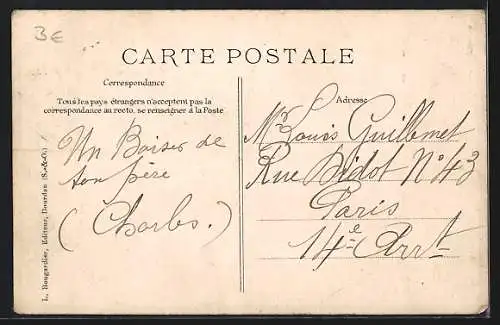 3€
CARTE POSTALE
Correspondance
Tous les pays étrangers n'acceptent pas la
correspondance au recto, se renseigner à la Poste
Un Baiser de
ton père
(Charles.)
L. Rougardier, Editeur, Dourdan (S.-&-O.)
Adresse
Mr Louis Guillemet
Rue Didot N° 43
Paris
14e Arrt